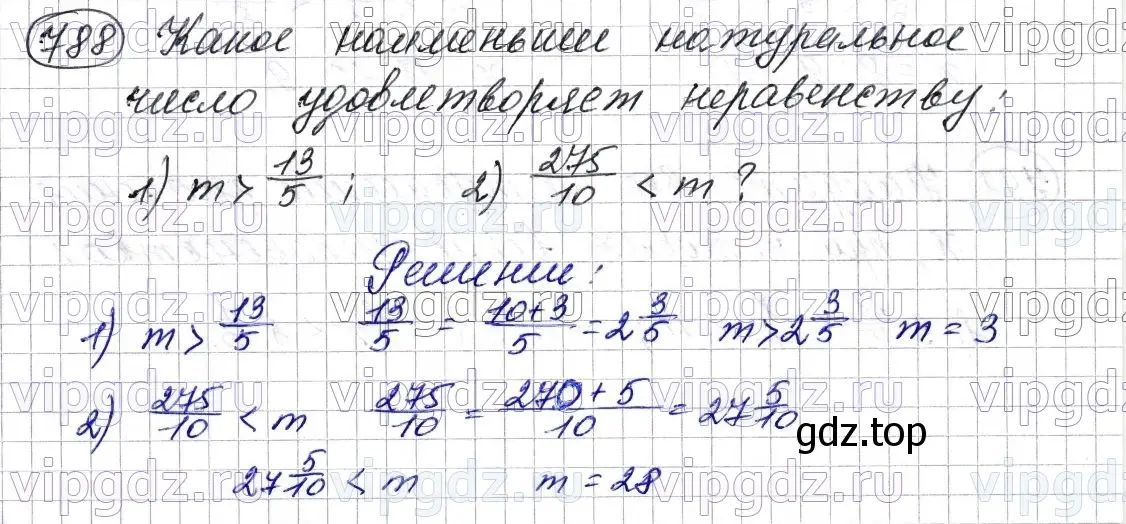 788 Какое наименьшее натуральное
число удовлетворяет неравенству:
1) m > 13/5 ; 2) 275/10 < m ?
Решение:
1) m > 13/5 13/5 = 10+3/5 = 2 3/5 m > 2 3/5 m = 3
2) 275/10 < m 275/10 = 270+5/10 = 27 5/10
27 5/10 < m m = 28
gdz.top
vipgdz.ru